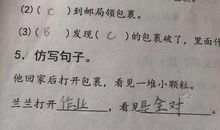 (2)( C )到邮局领包裹。
(3)( B )发现( C )的包裹破了，里面
5．仿写句子。
他回家后打开包裹，看见一堆小颗粒。
兰兰打开作业，看见是全对